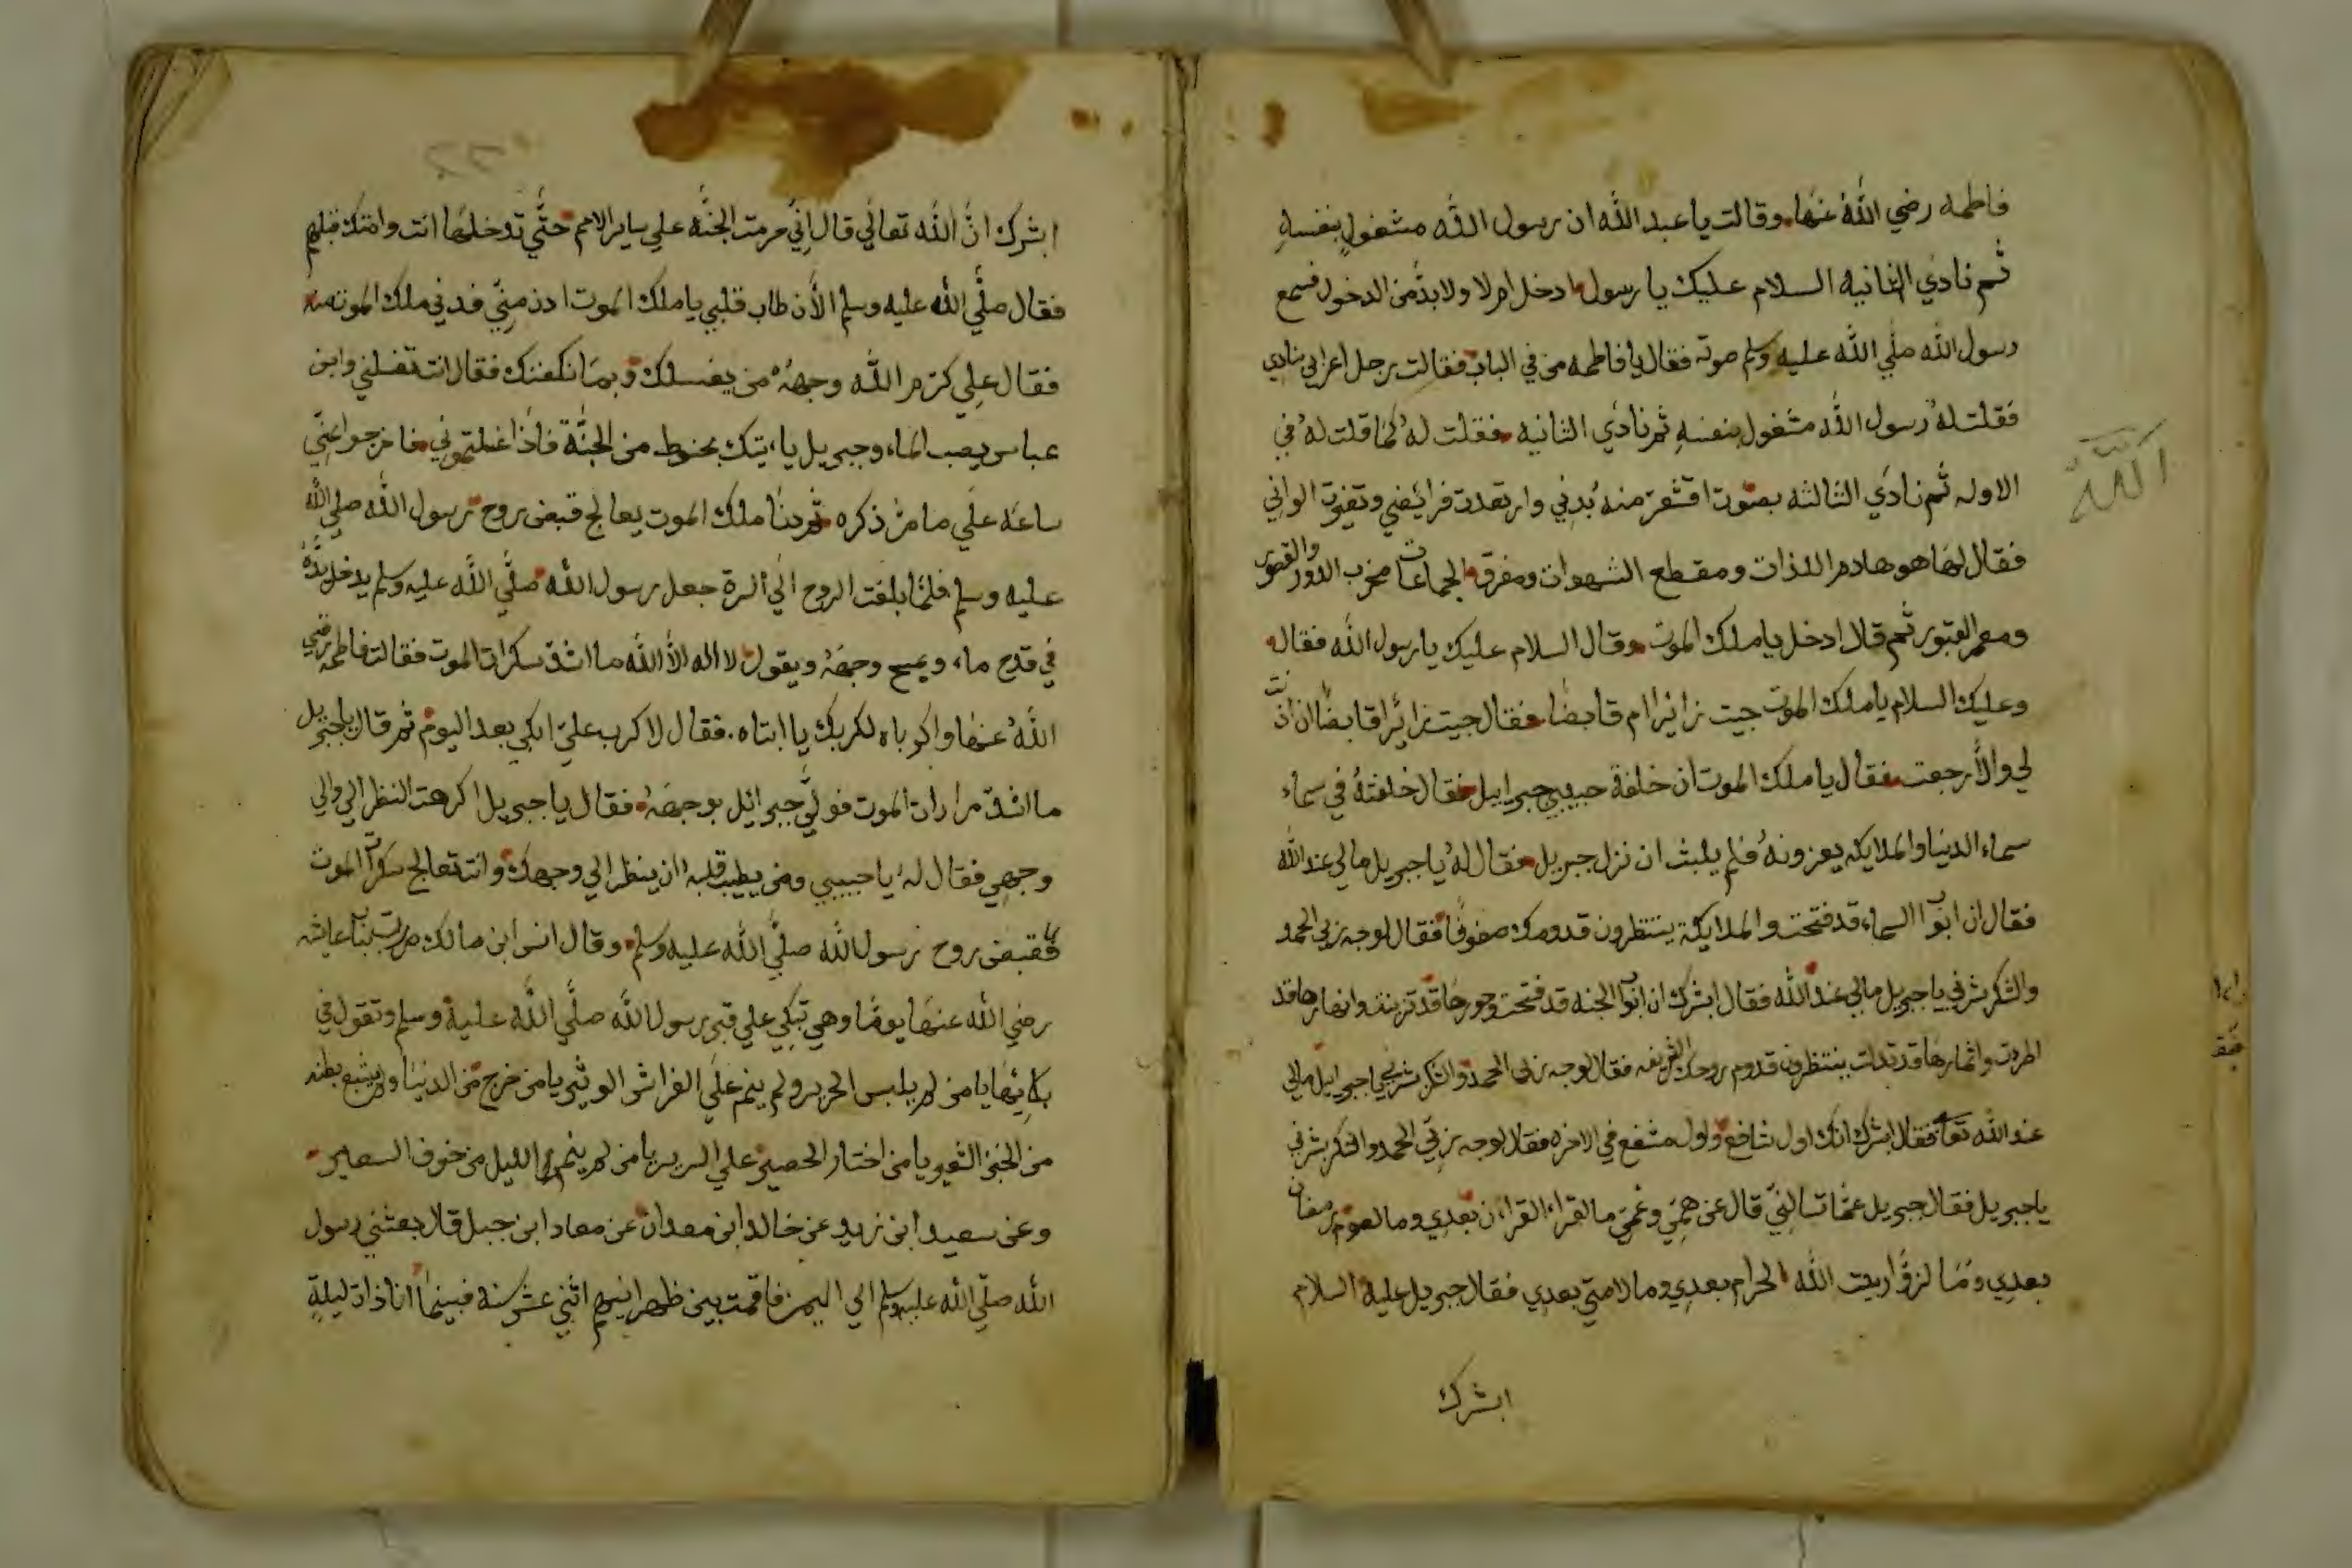 فاطمه رضي اللهُ عنها وقالت يا عبد الله ان رسول الله مشغول بنفسهِ
ثم نادي الثانيه السلام عليك يا رسول ادخل ام لا ولا بدَّ من الدخول فسمع
رسول الله صلي الله عليه وسلم صوته فقال يا فاطمه من في الباب فقالت رجل اعرابي ينادي
فقلت لهُ رسول الله مشغول بنفسهِ ثم نادي الثانيه فقلت لهُ كما قلت لهُ في
الاوله ثم نادي الثالثه بصوت اقشعر منه بُدني وارتعدت فرائضي وتغيرت الواني
فقال لها هو هادم اللذات ومقطع الشهوات ومفرق الجماعات مخرب الدور والقصور
ومعمر القبور ثم قال ادخل يا ملك الموت وقال السلام عليك يا رسول الله فقال
وعليك السلام يا ملك الموت جيت زائرا ام قابضا فقال جيت زائرا قابضا ان اذنت
لي والا رجعت فقال يا ملك الموت ان خلفة حبيبي جبرائيل فقال خلفتهُ في سماء
سماء الدنيا والملايكه يعزونهُ فلم يلبث ان نزل جبريل فقال لهُ يا جبريل مالي عند الله
فقال ان ابواب السماء قد فتحت والملايكة ينتظرون قدومك صفوفا فقال لوجه ربي الحمد
والشكر بشرني يا جبريل مالي عند الله فقال ابشرك ان ابواب الجنه قد فتحت وحورها قد تزينت وانهارها قد
اطردت واثمارها قد تدلت ينتظرون قدوم روحك الشريفه فقال لوجه ربي الحمد والشكر بشرني يا جبرايل مالي
عند الله تعا فقال ابشرك انك اول شافع واول مشفع في الاخره فقال لوجه ربي الحمد والشكر بشرني
يا جبريل فقال جبريل عمّا تسالني قال عن همّي وغمّي ما لقراء القران بعدي وما لصوم رمضان
بعدي وما لزوّار بيت الله الحرام بعدي وما لامتي بعدي فقال جبريل عليه السلام
ابشرك
الله
ابشرك انّ الله تعالي قال انّي حرمت الجنّه علي ساير الامم حتّي تدخلها انت وامتك قبلهم
فقال صلّي الله عليه وسلم الأن طاب قلبي يا ملك الموت ادن منّي فدني ملك الموت منه
فقال علي كرّم الله وجههُ من يغسلك وبما نكفنك فقال انت تغسلني وابن
عباس يصب الماء وجبريل ياءتيك بحنوط من الجنّة فاذا غسلتموني فاخرجوا عنّي
ساعه علي ما مرّ ذكره ثم دنا ملك الموت يعالج قبض روح رسول الله صلي الله
عليه وسلم فلما بلغت الروح الي السرة جعل رسول الله صلّي الله عليه وسلم يدخل يدهُ
في قدح ماء ويمسح وجههُ ويقول لا اله الا الله ما اشدّ سكرات الموت فقالت فاطمه رضي
اللهُ عنها واكرباه لكربك يا ابتاه فقال لا كرب عليّ ابكي بعد اليوم ثم قال يا جبريل
ما اشدّ مرارات الموت فولّي جبرائل بوجههُ فقال يا جبريل اكرهت النظر الي والي
وجهي فقال لهُ يا حبيبي ومن يطيب قلبه ان ينظر الي وجهك وانت تعالج سكرات الموت
فقبض روح رسول الله صلّي الله عليه وسلم وقال انس ابن مالك مررت بباب عايشه
رضي الله عنها يوما وهي تبكي علي قبر رسول الله صلّي الله عليه وسلم وتقول في
بكائها يا من لم يلبس الحرير ولم ينم علي الفراش الوثير يا من خرج من الدنيا ولم يشبع بطنه
من الخبز الشعير يا من اختار الحصير علي السرير يا من لم ينم الليل من خوف السعير
وعن سعيد ابن زيد عن خالد ابن معدان عن معاد ابن جبل قال بعثني رسول
الله صلّي الله عليه وسلم الي اليمن فاقمت بين ظهرانيهم اثني عشر سنة فبينما انا ذات ليلةٍ